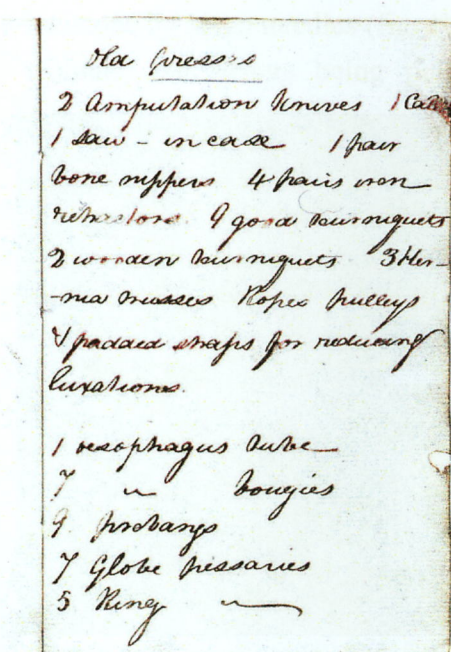 Old Presses
2 Amputation knives 1 Cat
1 saw - in case 1 pair
bone nippers 4 pairs iron
retractors 9 good tourniquets
2 wooden tourniquets 3 Her-
-nia trusses Ropes pulleys
& padded straps for reducing
luxations.
1 oesophagus tube
7 " bougies
9 probangs
7 Globe pessaries
5 Ring "